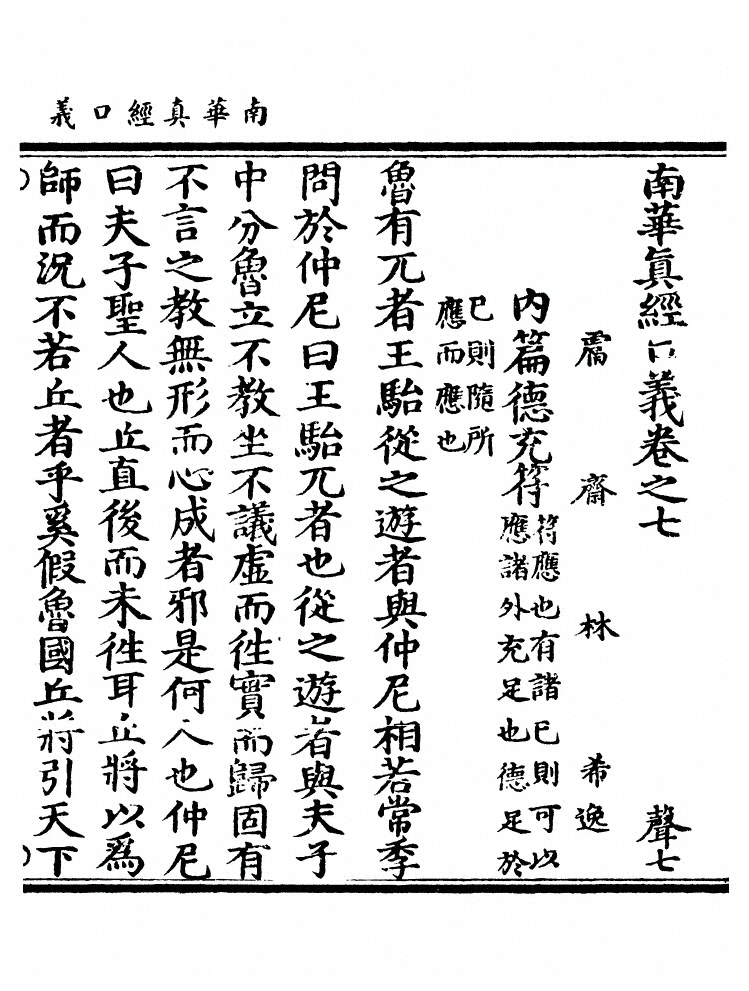 南華真經口義
南華真經口義卷之七 聲七
鬳齋 林 希逸
內篇德充符符應也有諸已則可以
應諸外充足也德足於
已則隨所
應而應也
魯有兀者王駘從之遊者與仲尼相若常季
問於仲尼曰王駘兀者也從之遊者與夫子
中分魯立不教坐不議虛而徃實而歸固有
不言之教無形而心成者邪是何人也仲尼
曰夫子聖人也丘直後而未徃耳丘將以為
師而況不若丘者乎奚假魯國丘將引天下